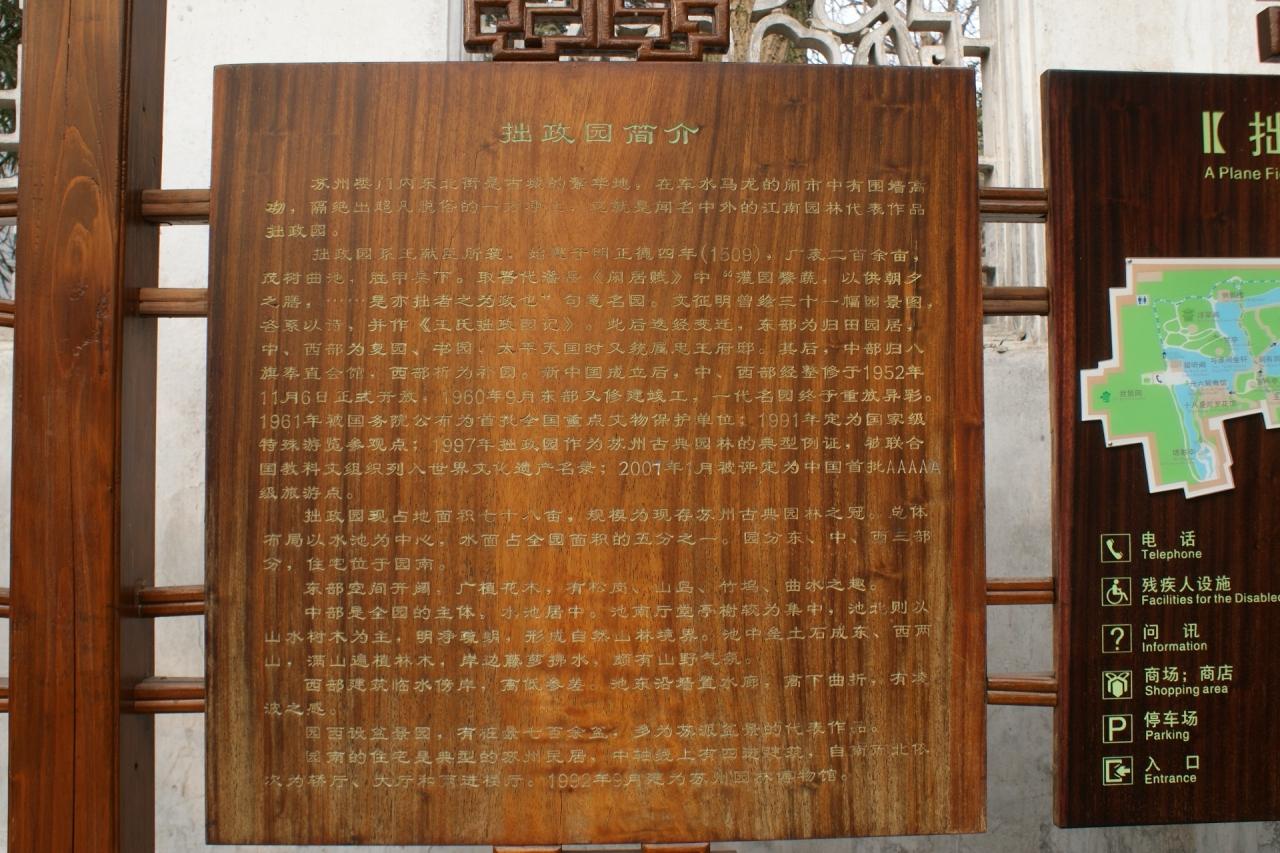 拙政园简介
苏州娄门内东北街是古城的繁华地，在车水马龙的闹市中有围墙高
隔绝出超凡脱俗的一方净土，这就是闻名中外的江南园林代表作品
拙政园。
拙政园系王献臣所筑，始建于明正德四年(1509)，广袤二百余亩，
茂树曲池，胜甲吴下。取晋代潘岳《闲居赋》中“灌园鬻蔬，以供朝夕
之膳，……是亦拙者之为政也”句意名园。文征明曾绘三十一幅园景图，
各系以诗，并作《王氏拙政园记》。此后迭经变迁，东部为归田园居，
中、西部为复园、书园，太平天国时又统属忠王府邸。其后，中部归八
旗奉直会馆，西部析为补园。新中国成立后，中、西部经整修于1952年
11月6日正式开放，1960年9月东部又修建竣工，一代名园终于重放异彩。
1961年被国务院公布为首批全国重点文物保护单位；1991年定为国家级
特殊游览参观点；1997年拙政园作为苏州古典园林的典型例证，被联合
国教科文组织列入世界文化遗产名录；2007年1月被评定为中国首批AAAAA
级旅游点。
拙政园现占地面积七十八亩，规模为现存苏州古典园林之冠。总体
布局以水池为中心，水面占全园面积的五分之一。园分东、中、西三部
分，住宅位于园南。
东部空间开阔，广植花木，有松岗、山岛、竹坞、曲水之趣。
中部是全园的主体，水池居中。池南厅堂亭榭较为集中，池北则以
山水树木为主，明净疏朗，形成自然山林境界。池中垒土石成东、西两
山，满山遍植林木，岸边藤萝拂水，颇有山野气氛。
西部建筑临水傍岸，高低参差。池东沿墙置水廊，高下曲折，有凌
波之感。
园西设盆景园，有桩景七百余盆，多为苏派盆景的代表作品。
园南的住宅是典型的苏州民居，中轴线上有四进建筑，自南而北依
次为轿厅、大厅和两进楼厅。1992年9月建为苏州园林博物馆。
拙
A Plane Fi
电 话
Telephone
残疾人设施
Facilities for the Disable
问 讯
Information
商场；商店
Shopping area
停车场
Parking
入 口
Entrance